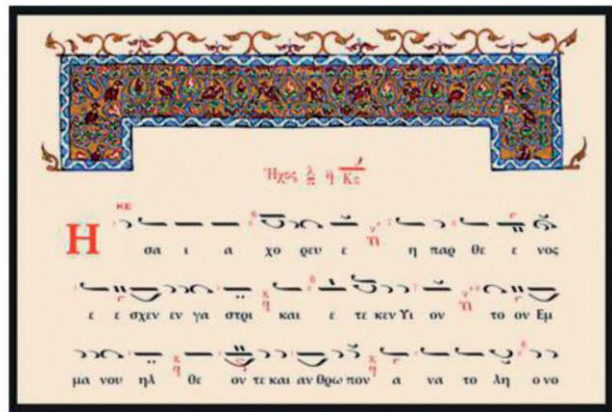 Ἦχος λ π η Κε
Η σα ι α χο ρευ ε η παρ θε ε νος
ε ε σχεν εν γα στρι και ε τε κεν Υι ον το ον Εμ
μα νου ηλ θε ον τε και αν θρω πον α να το λη ο νο